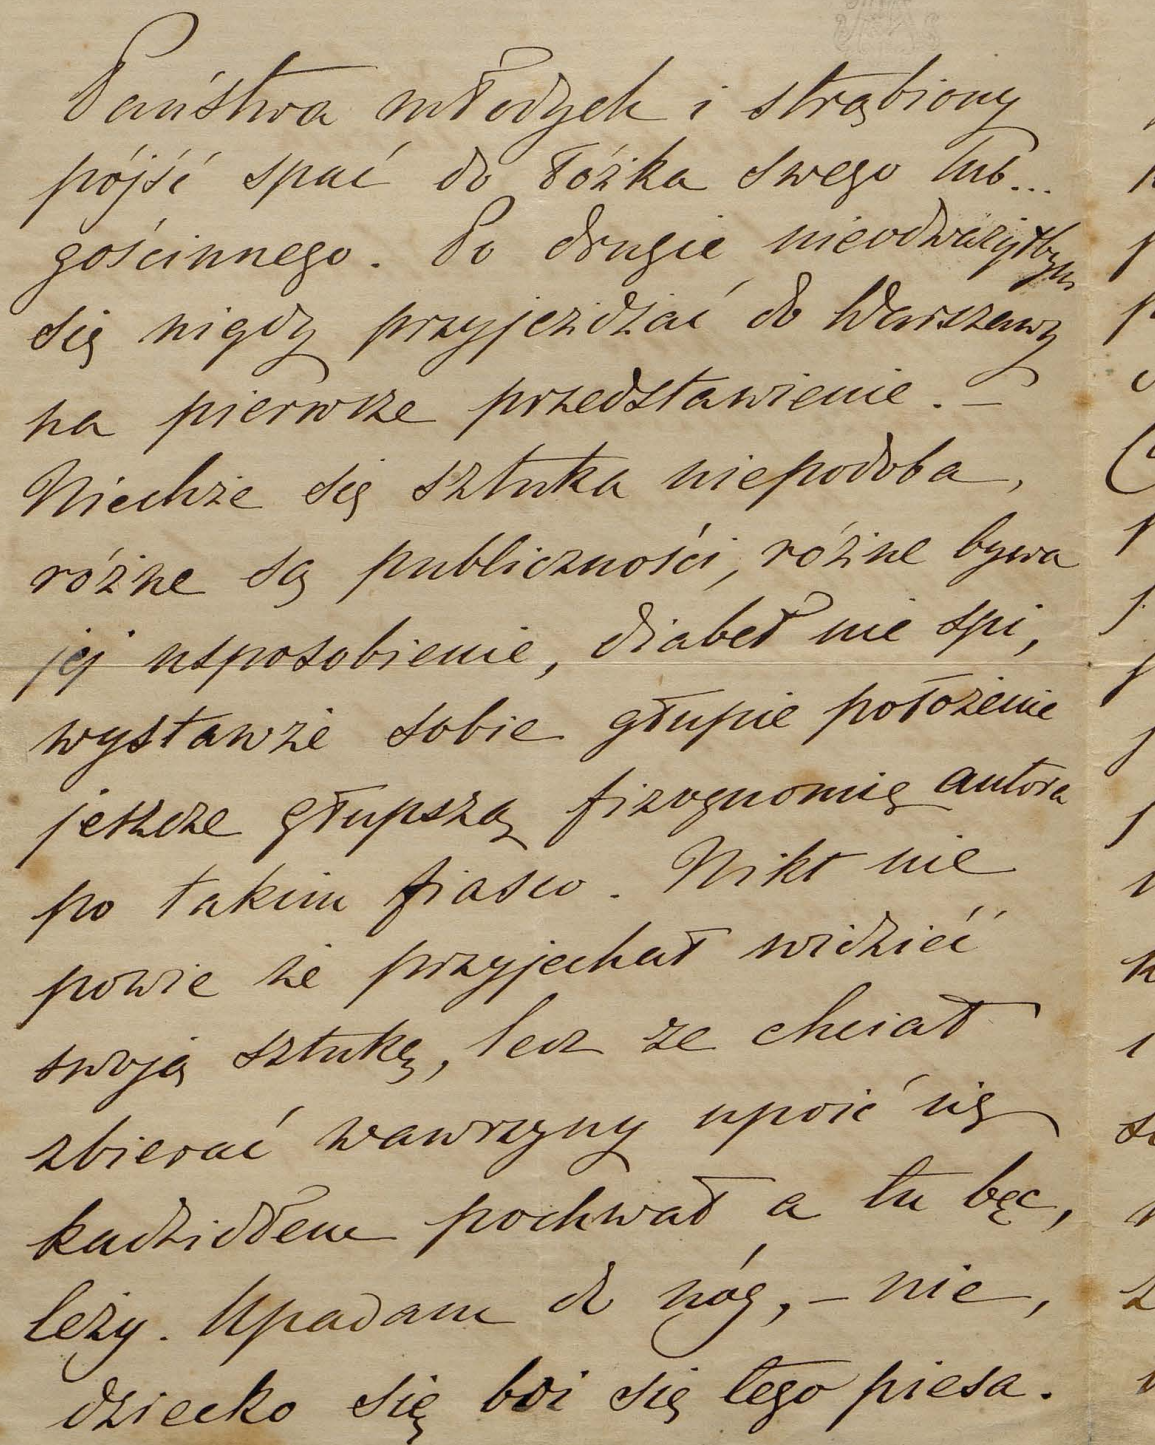 Państwa młodych i strąbiony
pójść spać do łóżka swego lub...
gościnnego. Po drugie nieodważyłbym
się nigdy przyjeżdżać do Warszawy
na pierwsze przedstawienie. –
Niechże się sztuka niepodoba,
różne są publiczności, różne bywa
jej usposobienie, diabeł nie śpi,
wystawże sobie głupie położenie
jeszcze głupszą fizognomię autora
po takim fiasco. Nikt nie
powie że przyjechał widzieć
swoją sztukę, lecz że chciał
zbierać wawrzyny upoić się
kadzidłem pochwał a tu bęc,
leży. Upadam do nóg, – nie,
dziecko się boi się tego piesa.